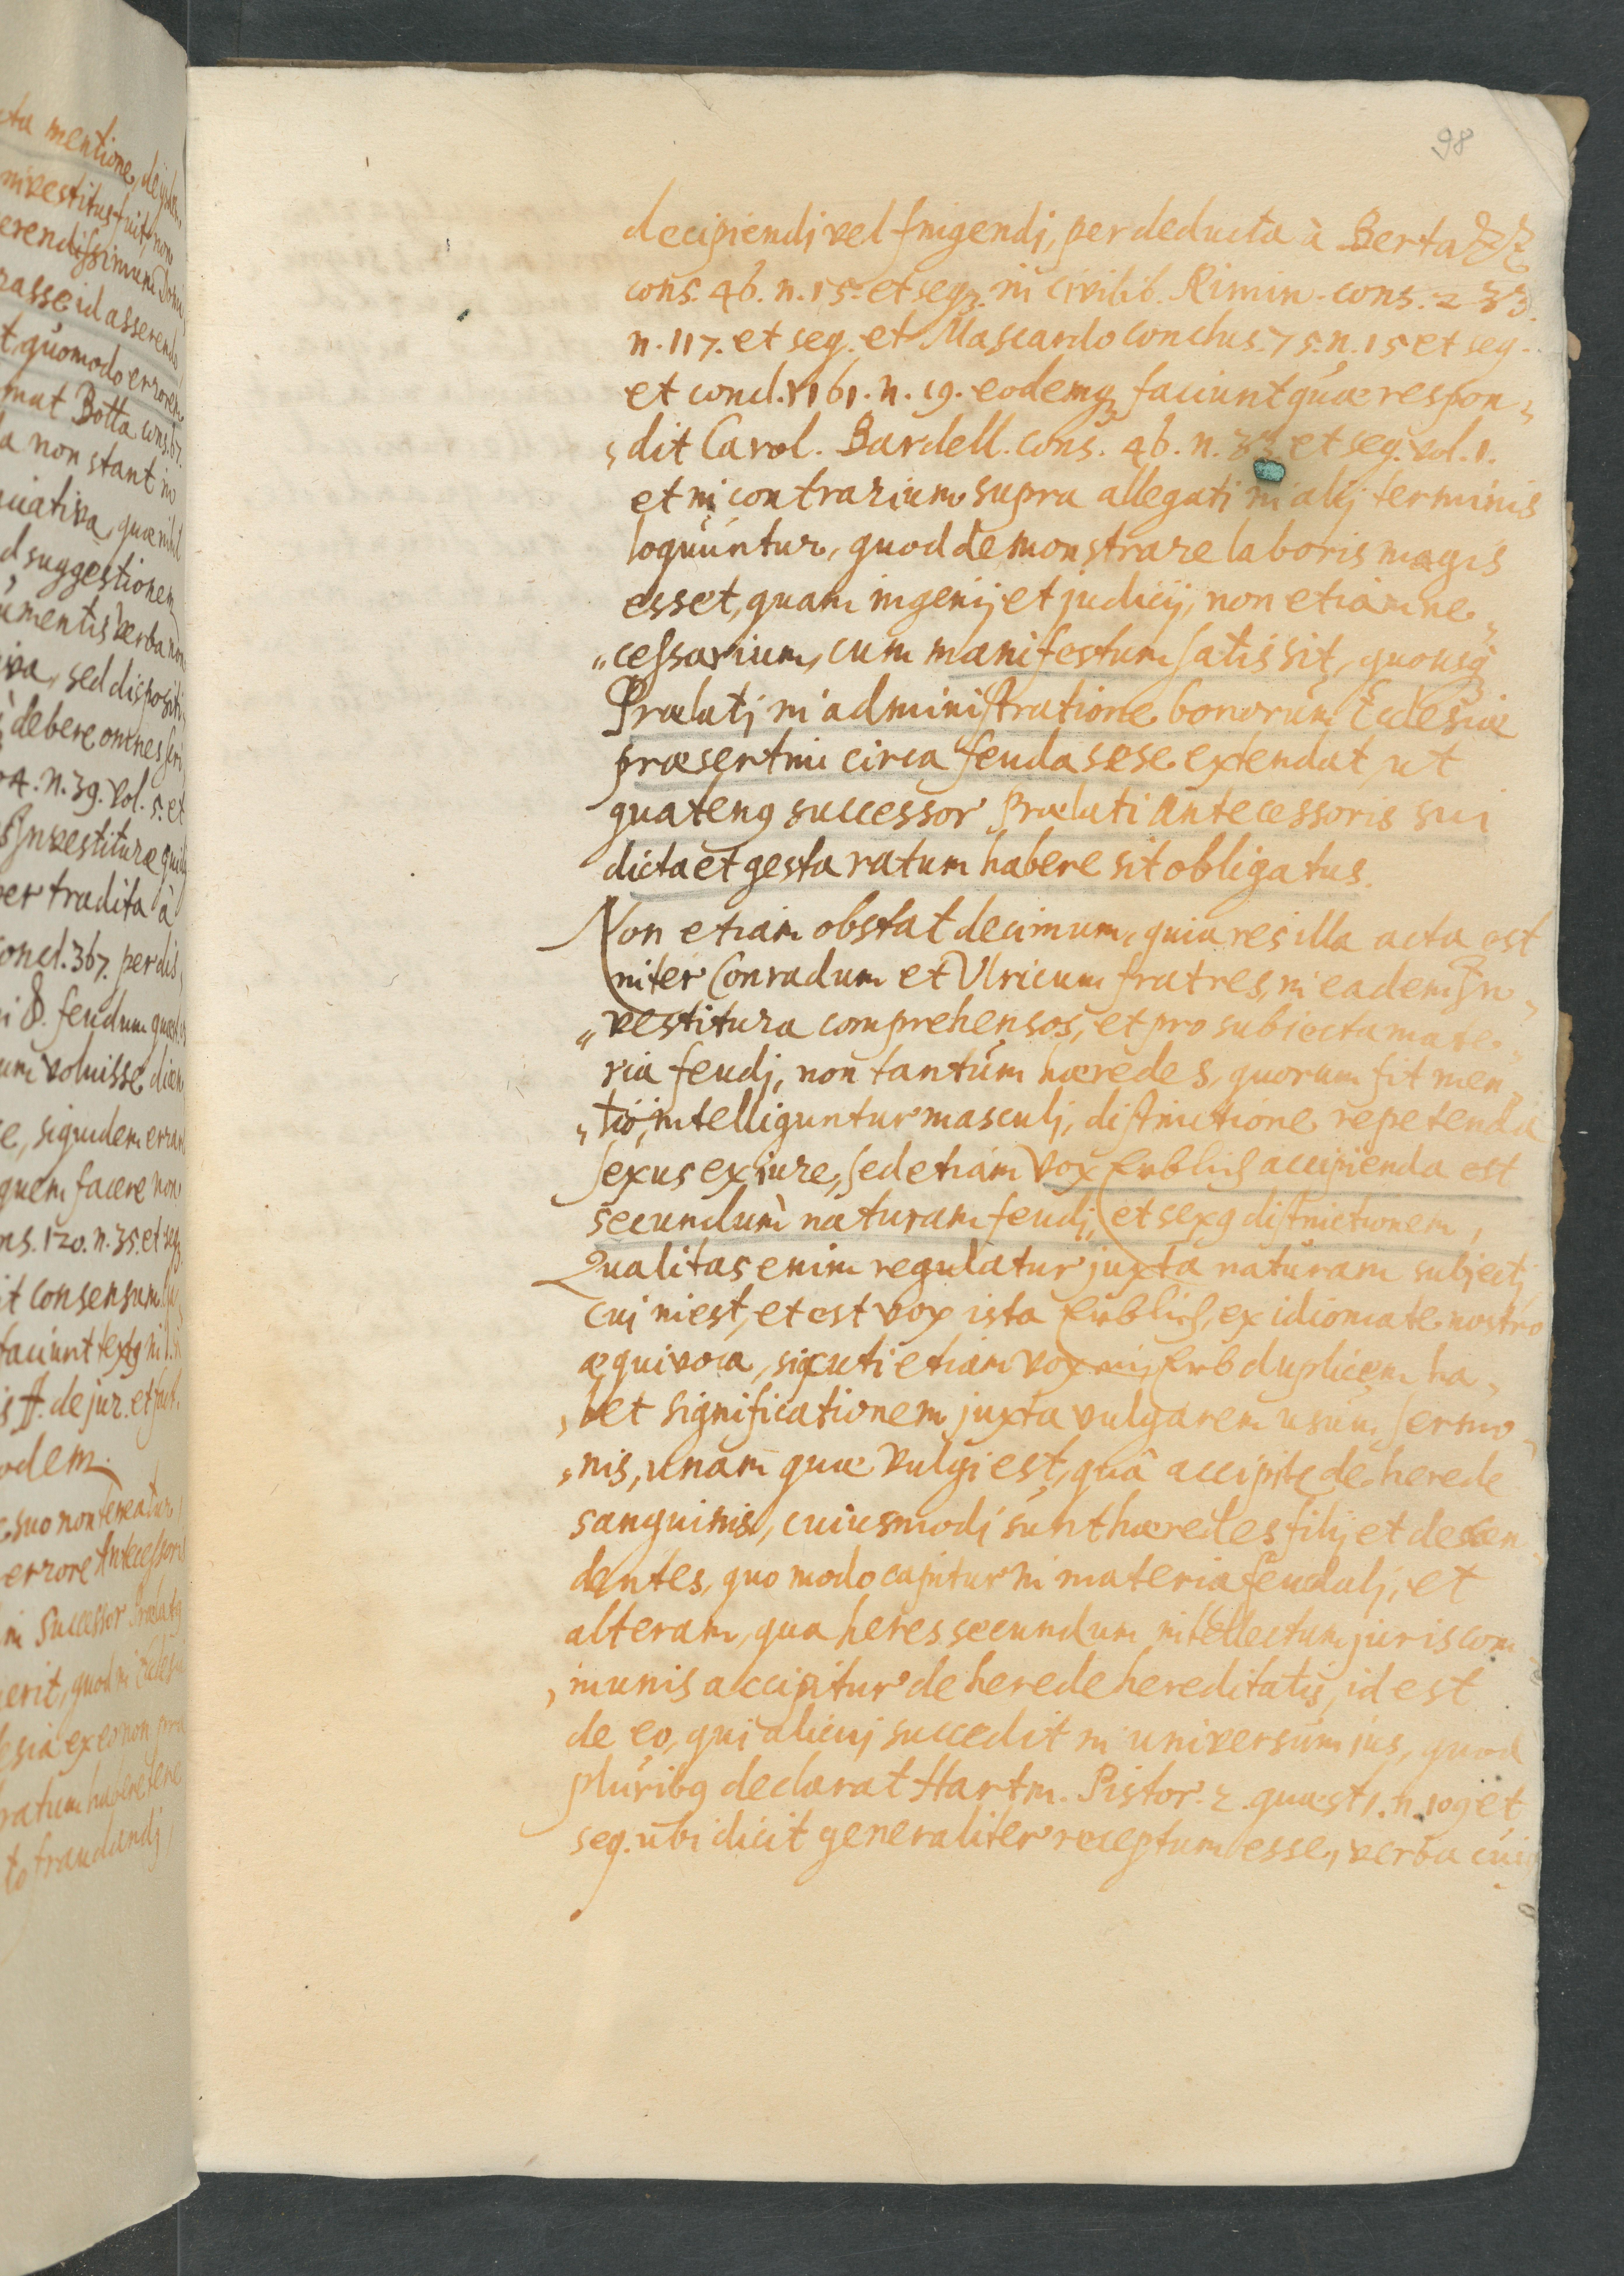 98
decipiendi vel fingendj, per deducta à Bertazz
cons. 46. n. 15. et seqz. in civilib. Rimin. cons. 233.
n. 117. et seq. et Mascardo conclus. 75. n. 15 et seq.
et concl. 1161. n. 19. eodemqz faciunt quæ respon„
„dit Carol. Bardell. cons. 46. n. 33 et seq. vol. 1.
et in contrarium supra allegati in alij terminis
loquuntur, quod demonstrare laboris magis
esset, quam ingenij et judicij, non etiam ne„
„cessarium, cum manifestum satis sit, quousqz
Prælatj in administratione bonorum Ecclesiæ
præsertim circa feuda sese extendat, ut
quatenq successor Prælati antecessoris sui
dicta et gesta ratum habere sit obligatus.
Non etiam obstat decimum, quia res illa acta est
inter Conradum et Ulricum fratres, in eadem In„
„vestitura comprehensos, et pro subiecta mate„
ria feudj, non tantùm hæredes, quorum fit men„
„tio, intelliguntur masculj, distinctione repetenda
sexus ex iure, sed etiam vox Erblich accipienda est
secundum naturam feudj, et sexq distinctionem,
Qualitas enim regulatur juxta naturam subjectj
cuj inest, et est vox ista Erblich, ex idiomate nostro
æquivoca, sicuti etiam vox Erb duplicem ha„
„bet significationem juxta vulgarem usum sermo„
„nis, unam quæ vulgi est, quâ accipitr de herede
sanguinis, cuiusmodj sunt hæredes filij et descen„
dentes, quo modo capitur in materia feudalj, et
alteram, qua heres secundum intellectum juris com„
„munis accipitur de herede hereditatis, id est
de eo, qui alicuj succedit in universum jus, quod
pluribq declarat Hartm. Pistor. 2. quæst 1. n. 109 et
seq. ubi dicit generaliter receptum esse, verba